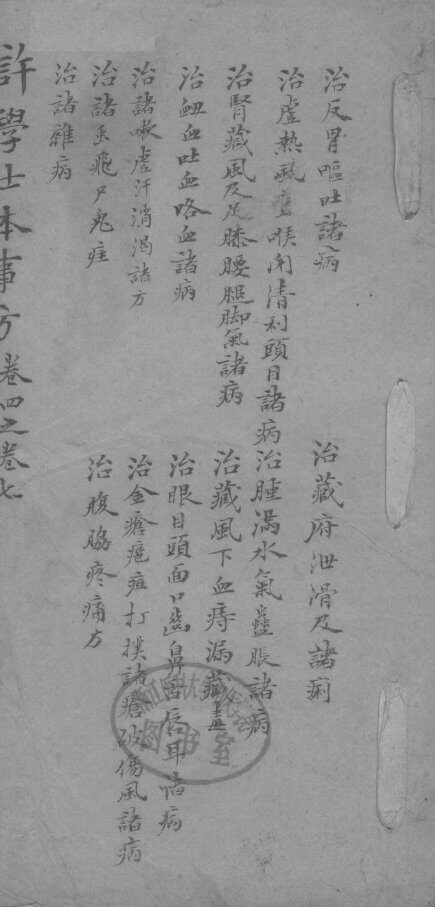 治反胃嘔吐諸病
治藏府泄滑及諸痢
治虛熱風壅喉闭清利頭目諸病
治腫滿水氣蠱脹諸病
治腎藏風及足膝腰腿脚氣諸病
治藏風下血痔漏藏毒
治衂血吐血咯血諸病
治眼目頭面口齒鼻舌唇耳諸病
治諸嗽虛汗消渴諸方
治金瘡瘢疽打撲諸瘡破傷風諸病
治諸虫飛尸鬼疰
治腹脇疼痛方
治諸雜病
許學士本事方 卷四之卷七
图书室